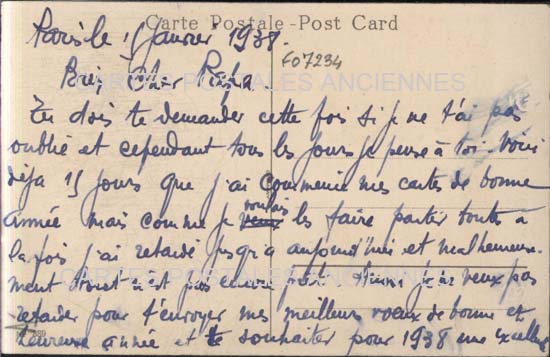 Carte Postale - Post Card
Paris le 15 Janvier 1938.
F07234
Cher
CARTES POSTALES ANCIENNES
Tu dois te demander cette fois si je ne t'ai pas
oublié et cependant tous les jours je pense à toi. Voici
déja 15 jours que j'ai commencé mes cartes de bonne
année mais comme je voulais les faire partir toutes à
la fois j'ai retardé jusqu'a aujourd'hui et malheureuse-
CARTES POSTALES ANCIENNES
ment tout n'est pas encore je ne veux pas
retarder pour t'envoyer mes meilleurs voeux de bonne et
heureuse année et te souhaiter pour 1938 une